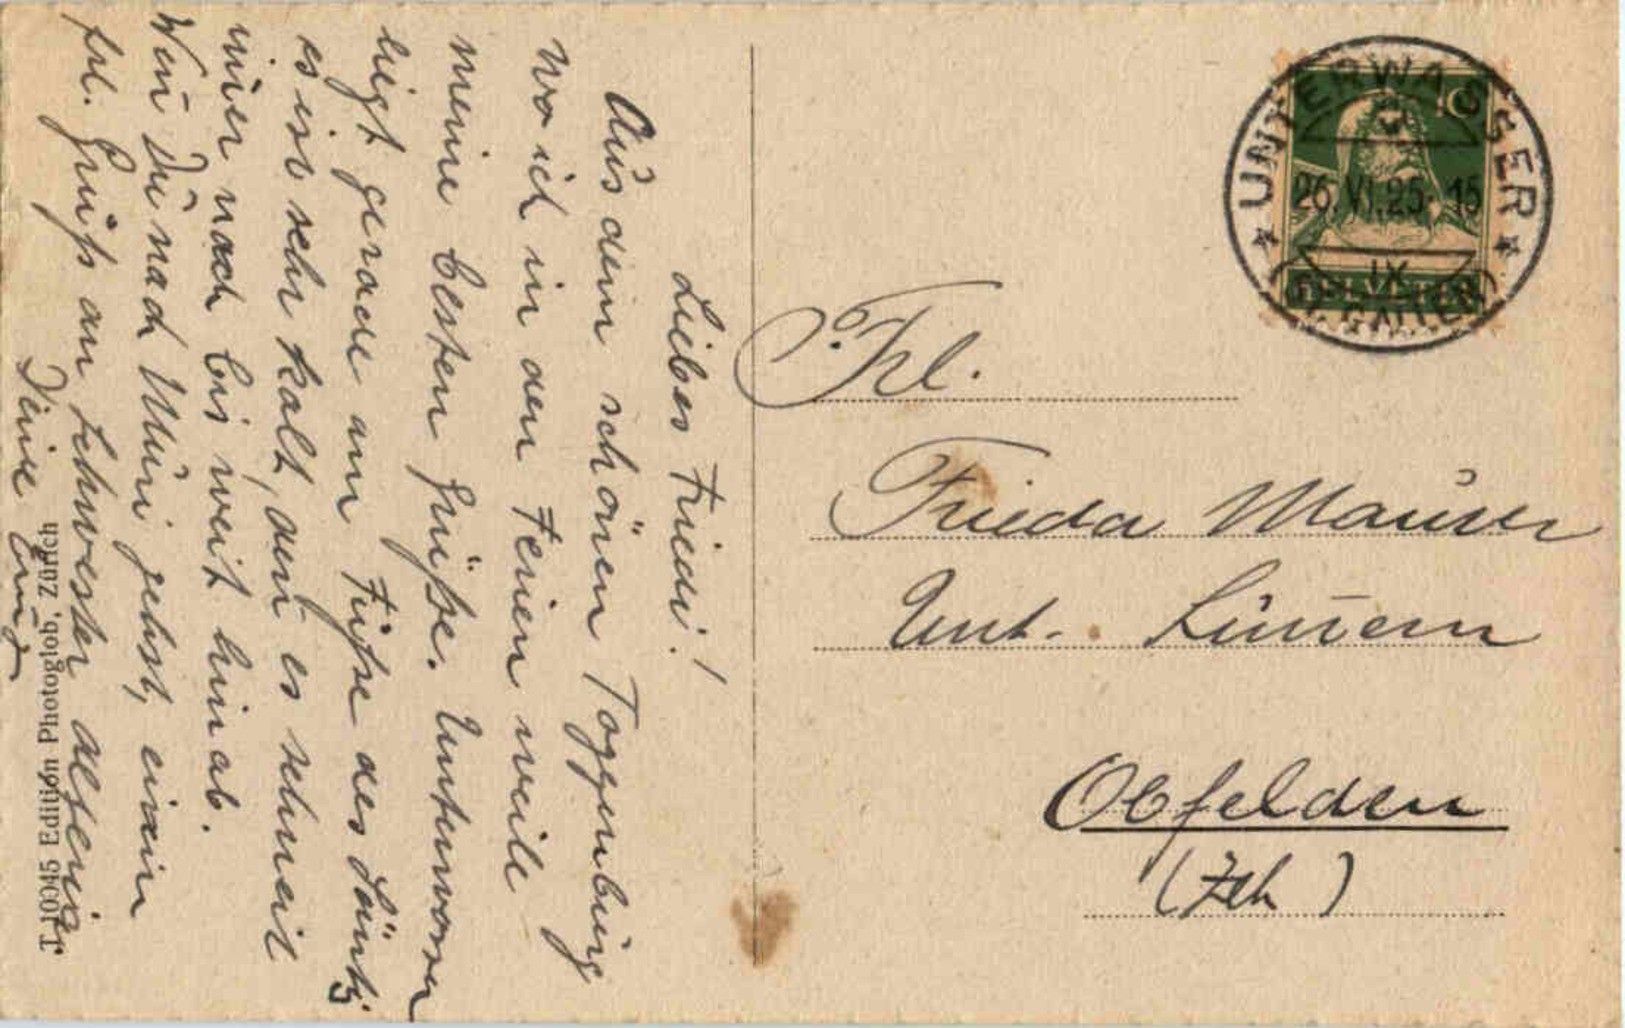 Liebes Friedi!
Aus dem schönen Toggenburg
wo ich in den Ferien weile
meine besten Grüße. Unterwasser
liegt gerade am Fuße des Säntis
es ist sehr kalt, den es schneit
nach bis weit hinab.
Wen Du nach Muri gehst, einen
frl. Gruß an Schwester
Deine Emmy
T 10045 Edition Photoglob, Zürich
UNTERWASSER
26.VI.25. 15
IX
(ST. GALLEN)
10
HELVETIA
Frl.
Frieda Maurer
Unt. Lunnern
Obfelden
(Zch)